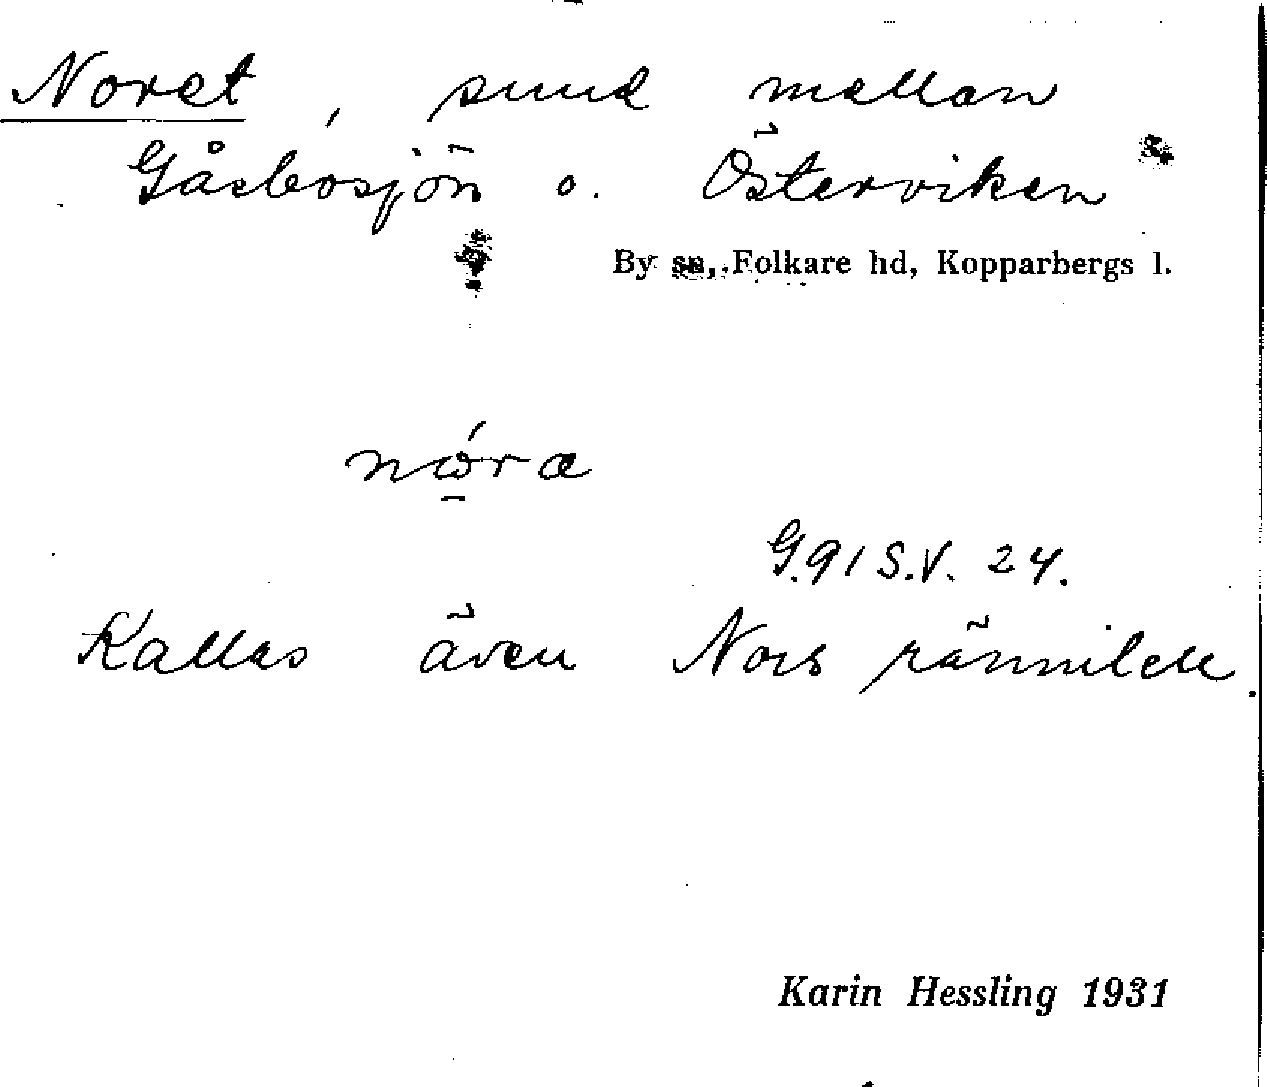 Noret, sund mellan
Gåsbosjön o. Österviken
By sn, Folkare hd, Kopparbergs l.
nǿra
G.91 S.V. 24.
Kallas även Nors rännilen.
Karin Hessling 1931